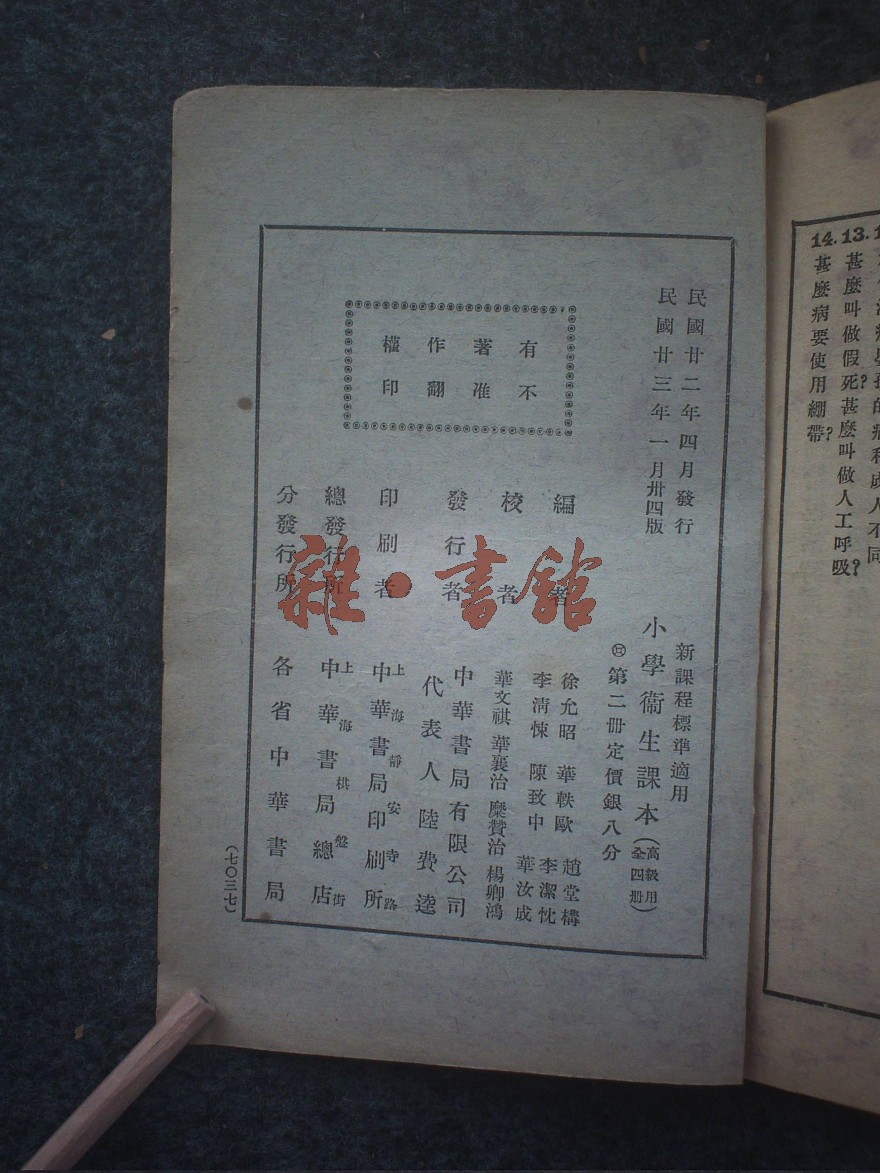 民國廿二年四月發行
民國廿三年一月卅四版
有著作權
不准翻印
新課程標準適用
小學衞生課本(高級用 全四册)
第二册定價銀八分
編者
徐允昭 華軼歐 趙堂構
李清悚 陳致中 李潔忱
校者
華汝成
華文祺 華襄治 糜贊治 楊卿鴻
發行者
中華書局有限公司
代表人 陸費逵
印刷者
上海靜安寺路
中華書局印刷所
總發行所
上海棋盤街
中華書局總店
分發行所
各省中華書局
(七〇三七)
雜·書館
13.甚麼叫做假死?甚麼叫做人工呼吸?
14.甚麼病要使用綳帶?